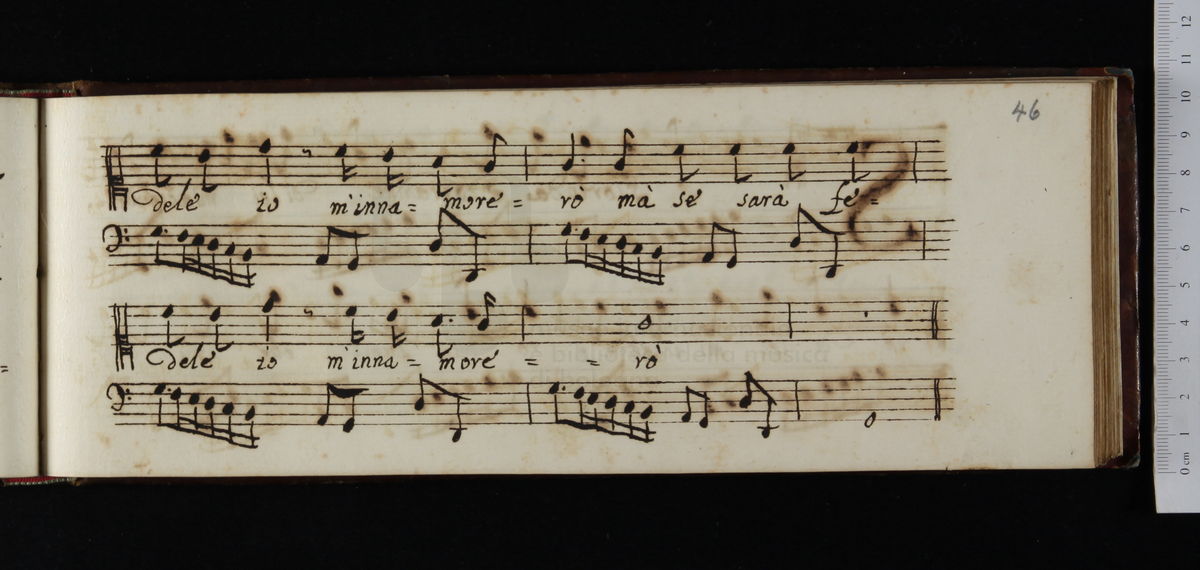 46
dele io m'inna= more = rò mà se sarà fe=
dele io m'inna = more = = rò
biblioteca della musica
0 cm 1 2 3 4 5 6 7 8 9 10 11 12